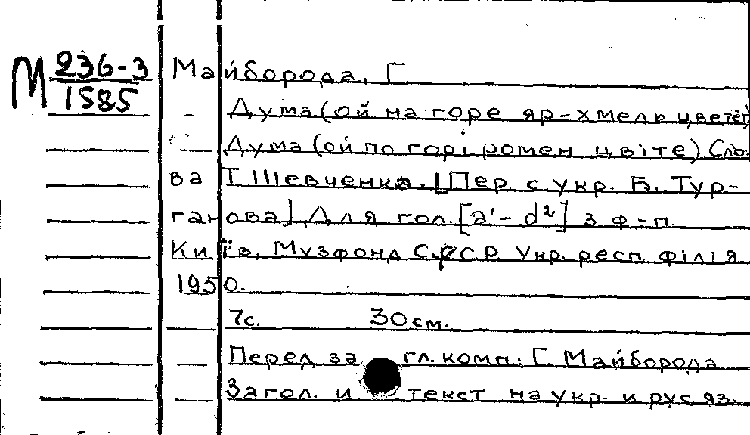 М 236-3
1585
Майборода, Г
Дума (ой на горе яр-хмель цветёт
Дума (ой по горі ромен цвіте) Сло-
ва Т Шевченка. [Пер с укр. Б. Тур-
ганова] Для гол. [a¹- d²] з ф-п.
Київ, Музфонд СРСР Укр. респ філія
1950.
7с. 30см.
Перед загл. комп: Г Майборода
Загол. и текст на укр. и рус яз.